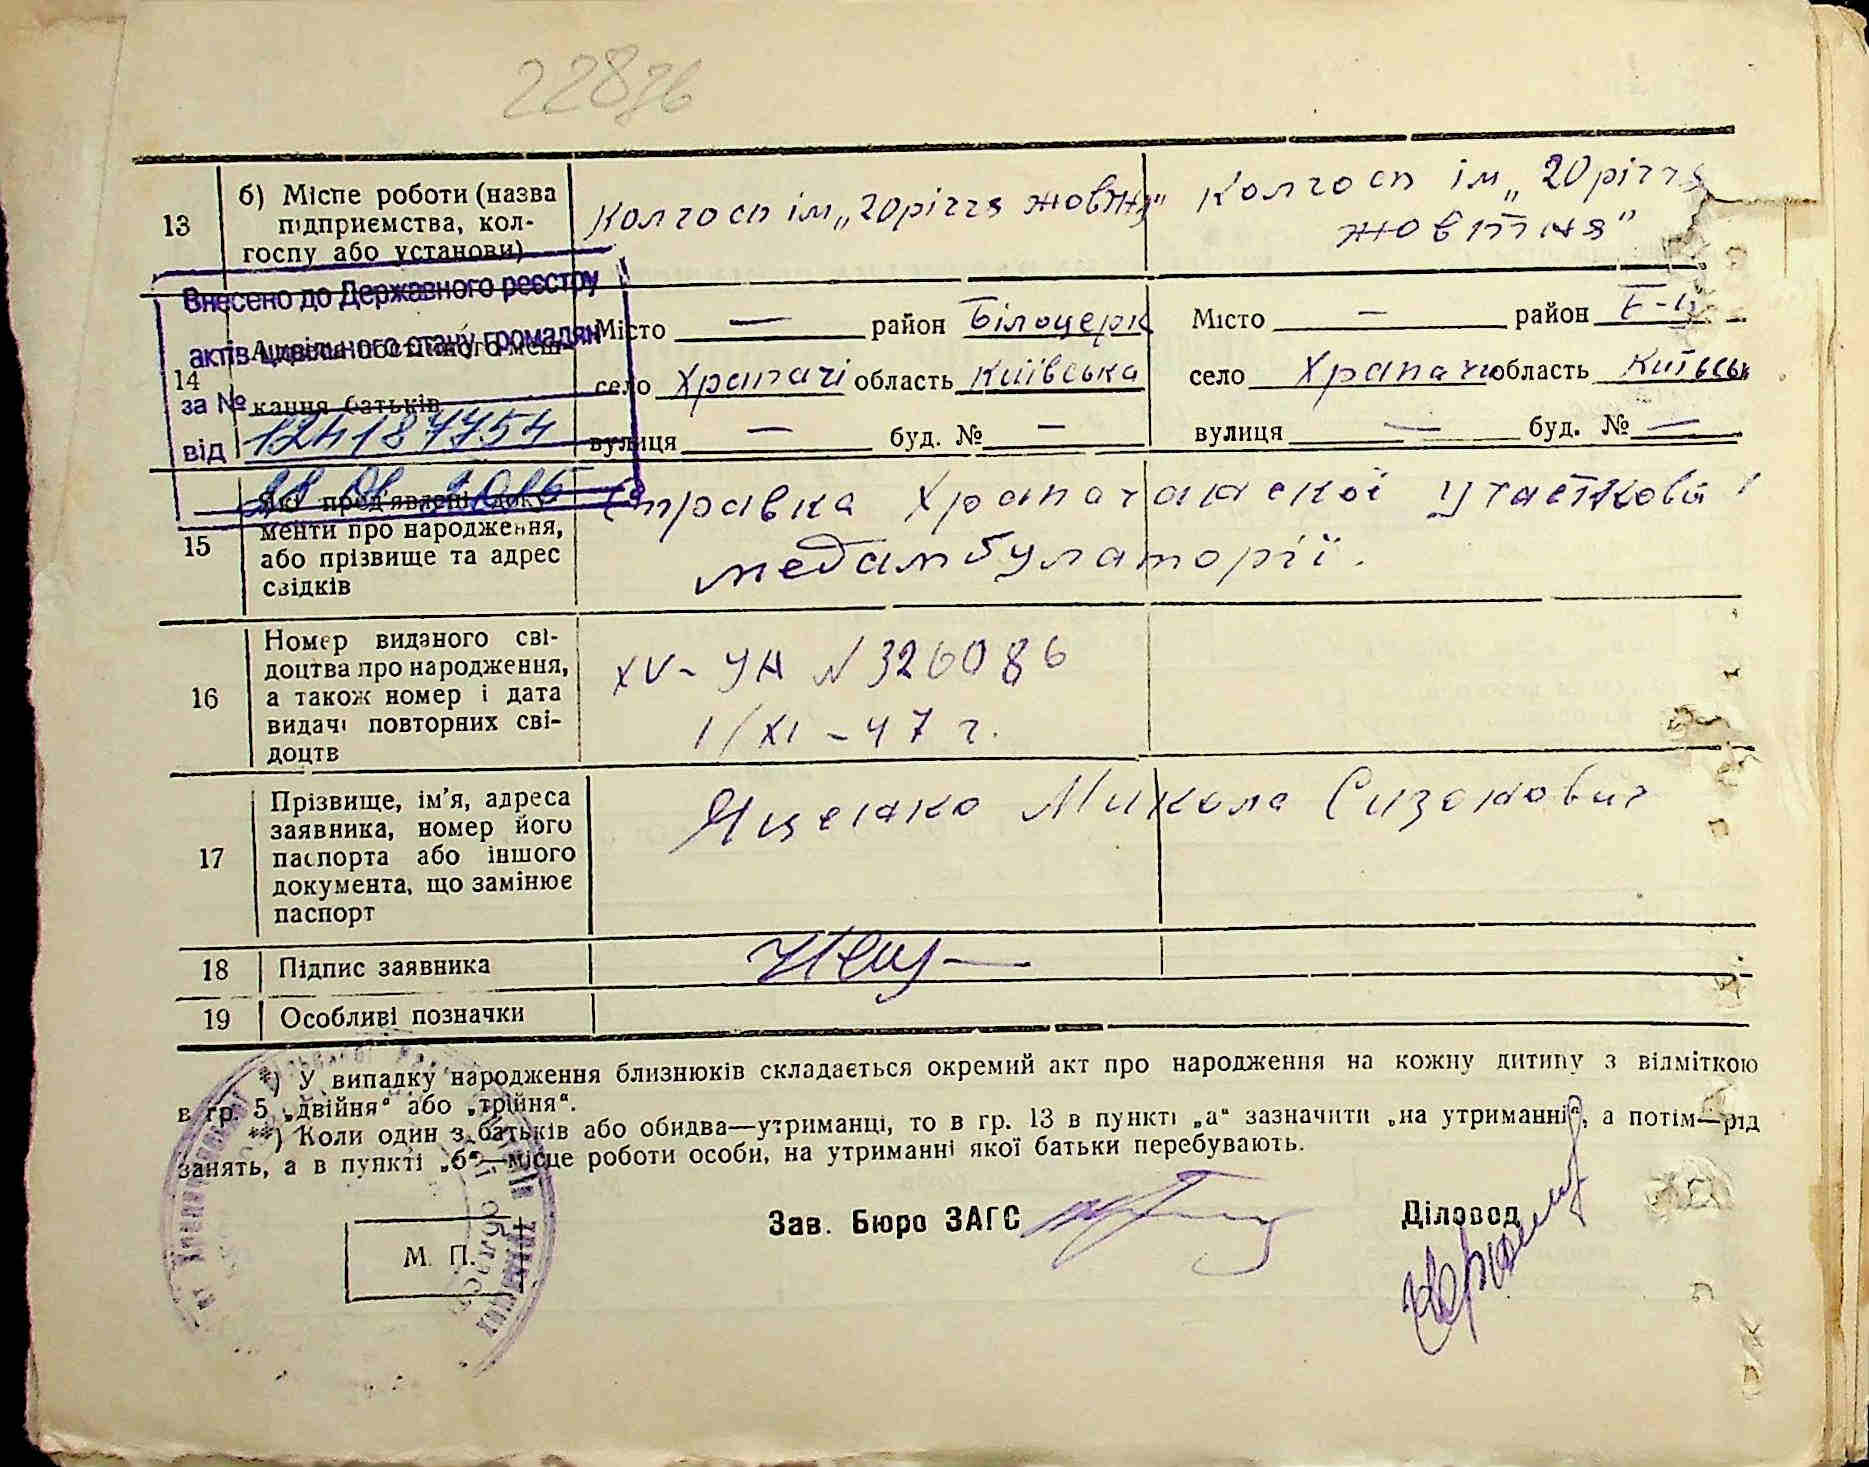 22876
13
б) Місце роботи (назва
підприємства, кол-
госпу або установи)
Колгосп ім „20річчя жовтня"
Колгосп ім „20річчя
жовтня"
Внесено до Державного реєстру
актів цивільного стану громадян
за №
124187754
від
14
Адреса постійного меш-
кання батьків
Місто — район Білоцерк
село Храпачі область Київська
вулиця — буд. № —
Місто — район Б-Ц
село Храпачі область Київськ
вулиця — буд. № —
15
Які пред'явлені доку-
менти про народження,
або прізвище та адрес
свідків
Справка Храпачанскої Участкової
медамбулаторії.
16
Номер виданого сві-
доцтва про народження,
а також номер і дата
видачі повторних сві-
доцтв
XV-УН N 326086
1/XI-47 г.
17
Прізвище, ім'я, адреса
заявника, номер його
паспорта або іншого
документа, що замінює
паспорт
Яценко Микола Сизонович
18
Підпис заявника
19
Особливі позначки
*) У випадку народження близнюків складається окремий акт про народження на кожну дитину з відміткою
в гр. 5 „двійня“ або „трійня“.
**) Коли один з батьків або обидва—утриманці, то в гр. 13 в пункті „а“ зазначити „на утриманні“, а потім—рід
занять, а в пункті „б“—місце роботи особи, на утриманні якої батьки перебувають.
Зав. Бюро ЗАГС
Діловод
М. П.